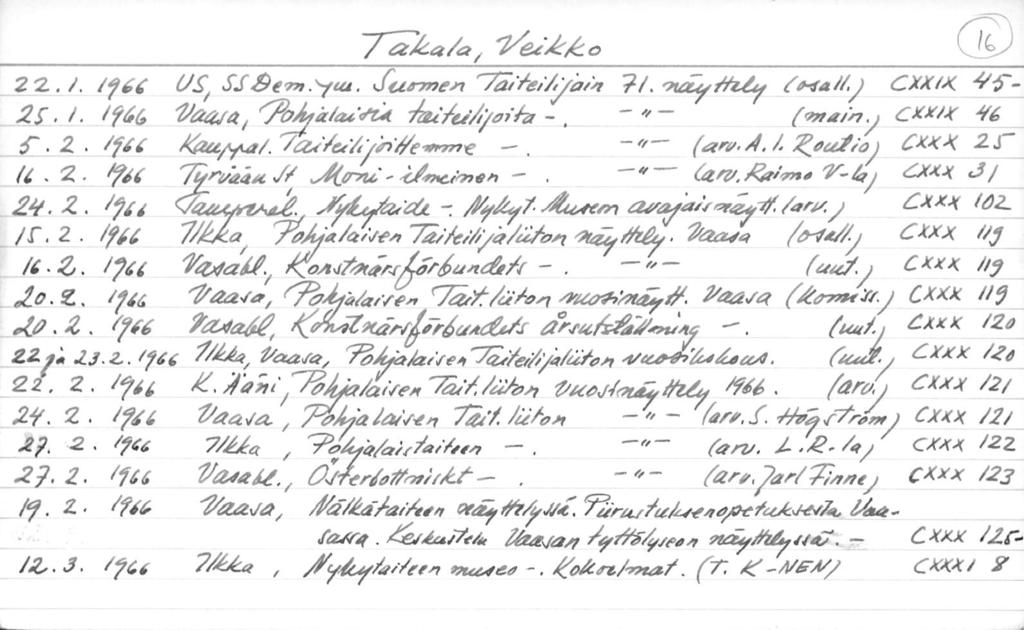 Takala, Veikko 16
22.1. 1966 US, SS Dem. ym. Suomen Taiteilijain 71. näyttely (osall.) CXXIX 45-
25.1. 1966 Vaasa, Pohjalaisia taiteilijoita -. -"- (main.) CXXIX 46
5.2. 1966 Kauppal. Taiteilijoittemme -. -"- (arv. A.I. Routio) CXXX 25
16.2. 1966 Tyrvään St, Moni-ilmeinen -. -"- (arv. Raimo V-la) CXXX 31
24.2. 1966 Tamperel., Nykytaide -. Nykyt. Museon avajaisnäytt. (arv.) CXXX 102
15.2. 1966 Ilkka, Pohjalaisen Taiteilijaliiton näyttely. Vaasa (osall.) CXXX 119
16.2. 1966 Vasabl., Konstnärsförbundets -. -"- (uut.) CXXX 119
20.2. 1966 Vaasa, Pohjalaisen Tait. liiton vuosinäytt. Vaasa (komiss.) CXXX 119
20.2. 1966 Vasabl, Konstnärsförbundets årsutställning -. (uut.) CXXX 120
22 ja 23.2. 1966 Ilkka, Vaasa, Pohjalaisen Taiteilijaliiton vuosikokous. (uut.) CXXX 120
22.2. 1966 K. Ääni, Pohjalaisen Tait. liiton vuosinäyttely 1966. (arv.) CXXX 121
24.2. 1966 Vaasa, Pohjalaisen Tait. liiton -"- (arv. S. Högström) CXXX 121
27.2. 1966 Ilkka, Pohjalaistaiteen -. -"- (arv. L.R-la) CXXX 122
27.2. 1966 Vasabl., Österbottniskt -. -"- (arv. Jarl Finne) CXXX 123
19.2. 1966 Vaasa, Nälkätaiteen näyttelyssä. Piirustuksenopetuksesta Vaa-
sassa. Keskustelu Vaasan tyttölyseon näyttelyssä. - CXXX 125-
12.3. 1966 Ilkka, Nykytaiteen museo -. Kokoelmat. (T. K-NEN) CXXXI 8